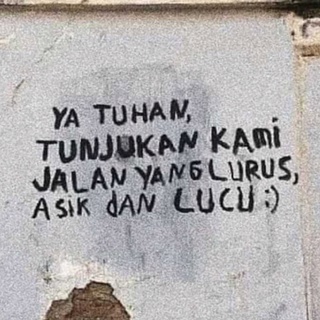 YA TUHAN,
TUNJUKAN KAMI
JALAN YANG LURUS,
ASIK dAN LUCU :)